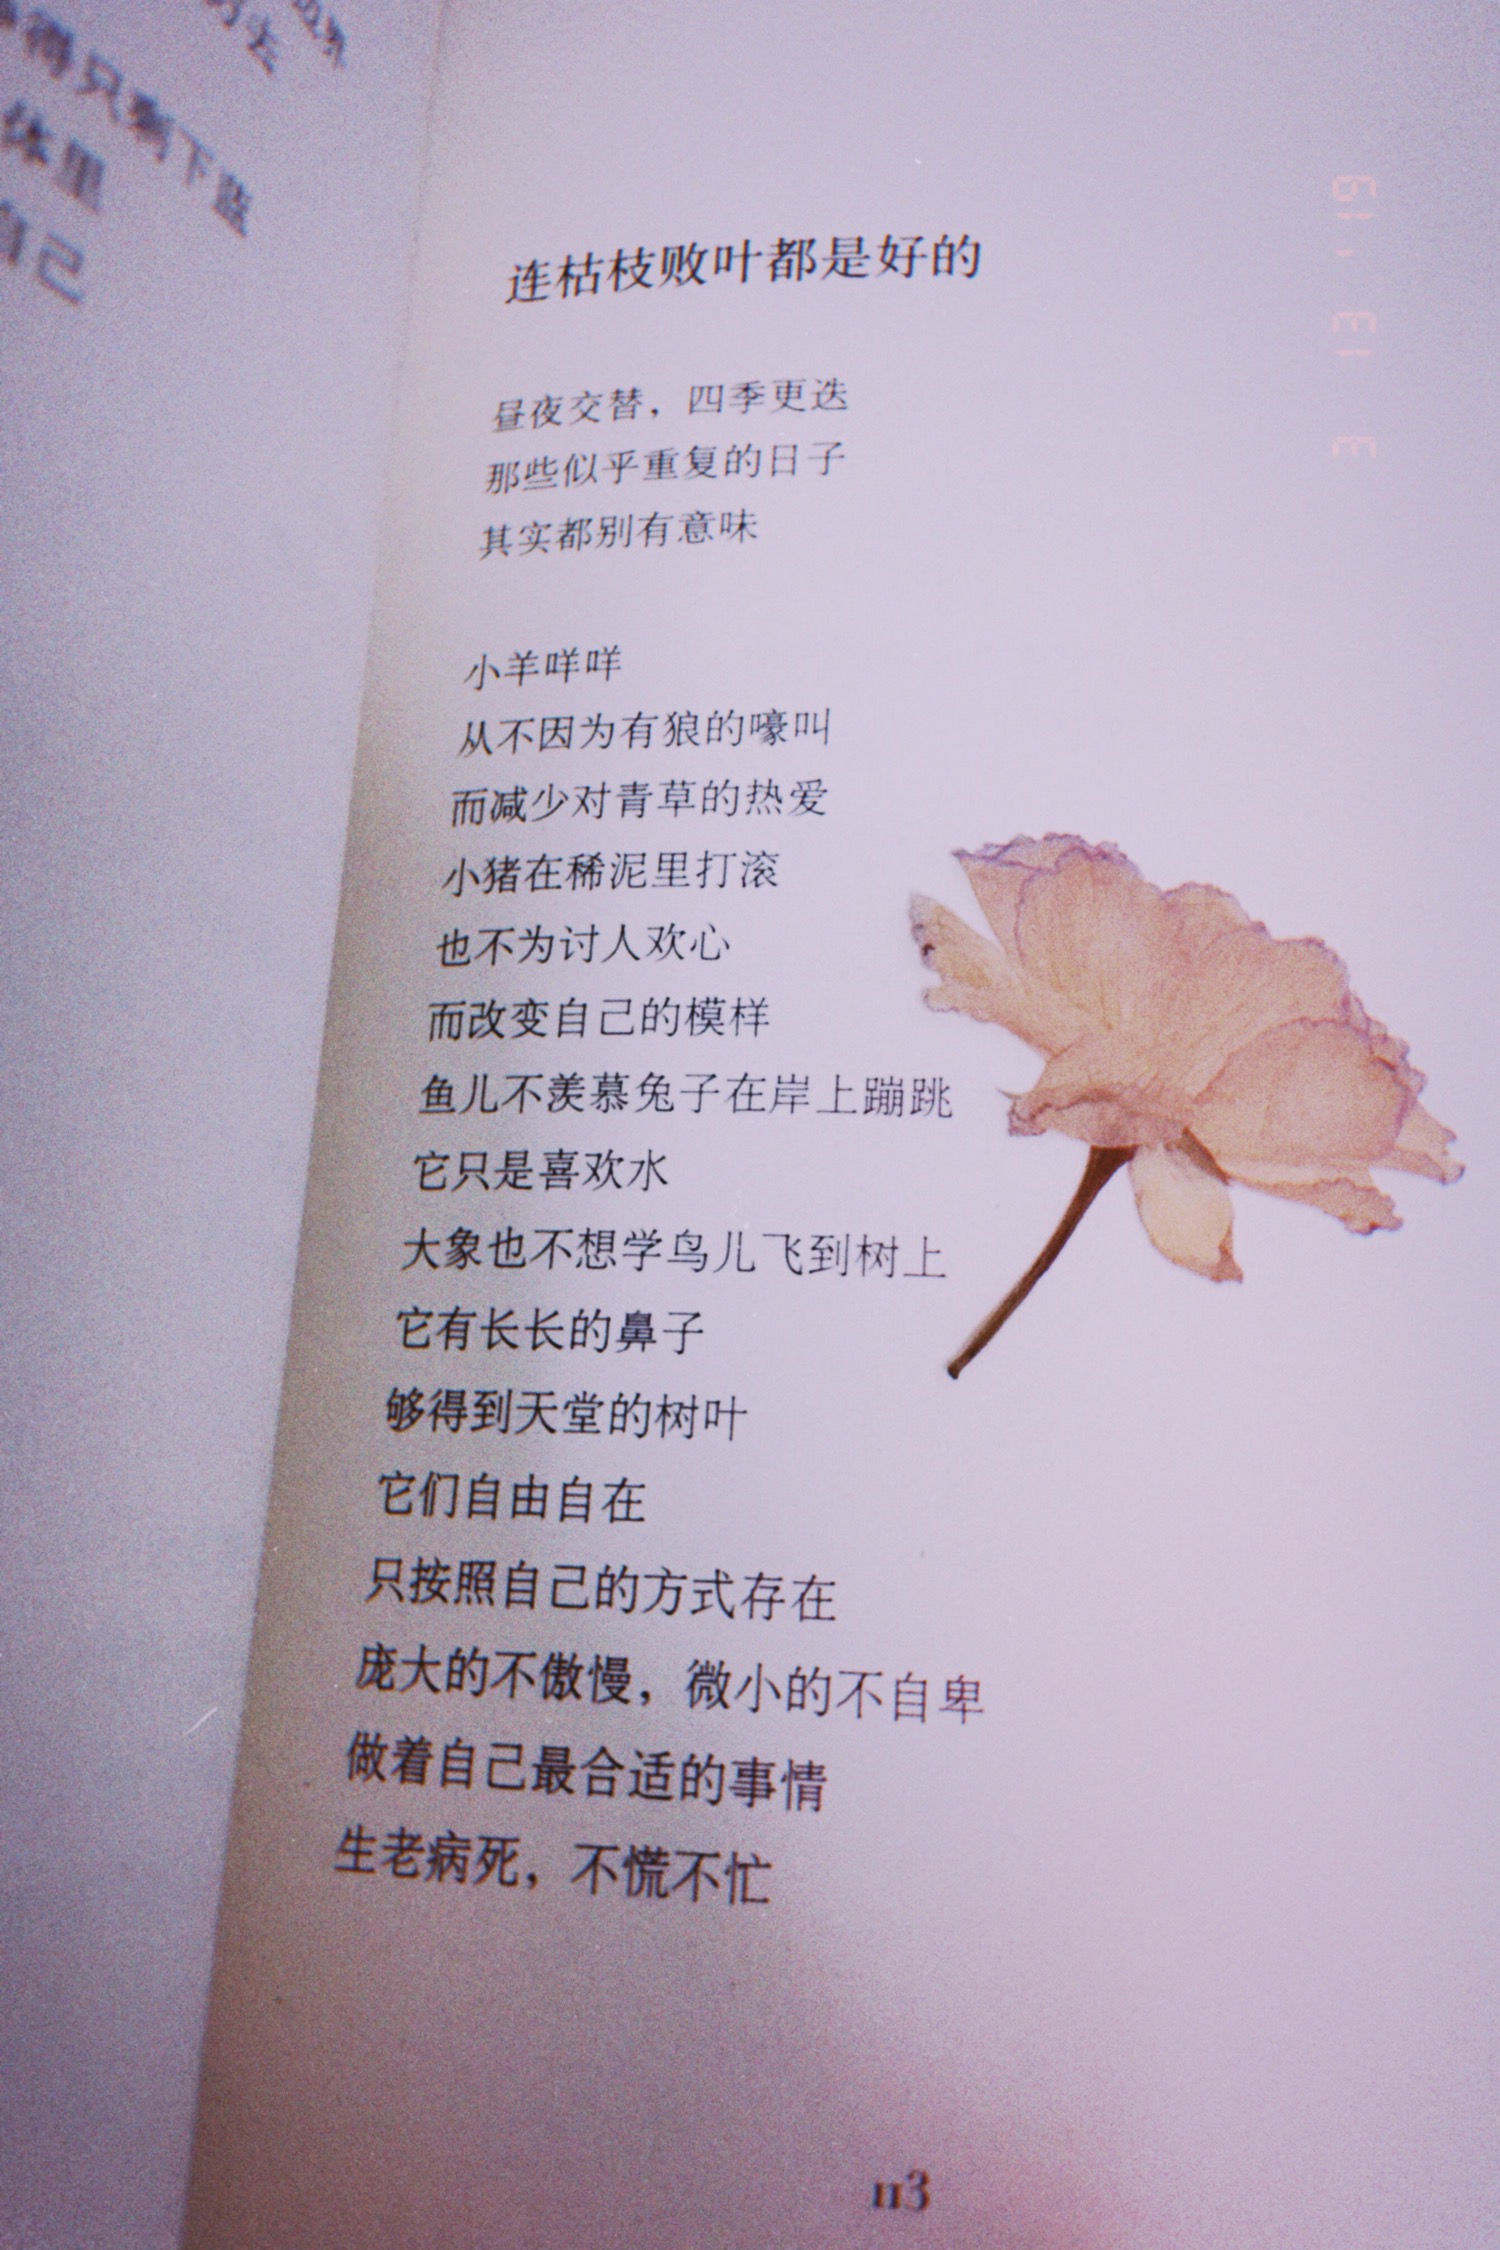 得只剩下蓝
体里
自己
连枯枝败叶都是好的
昼夜交替，四季更迭
那些似乎重复的日子
其实都别有意味
小羊咩咩
从不因为有狼的嚎叫
而减少对青草的热爱
小猪在稀泥里打滚
也不为讨人欢心
而改变自己的模样
鱼儿不羡慕兔子在岸上蹦跳
它只是喜欢水
大象也不想学鸟儿飞到树上
它有长长的鼻子
够得到天堂的树叶
它们自由自在
只按照自己的方式存在
庞大的不傲慢，微小的不自卑
做着自己最合适的事情
生老病死，不慌不忙
113